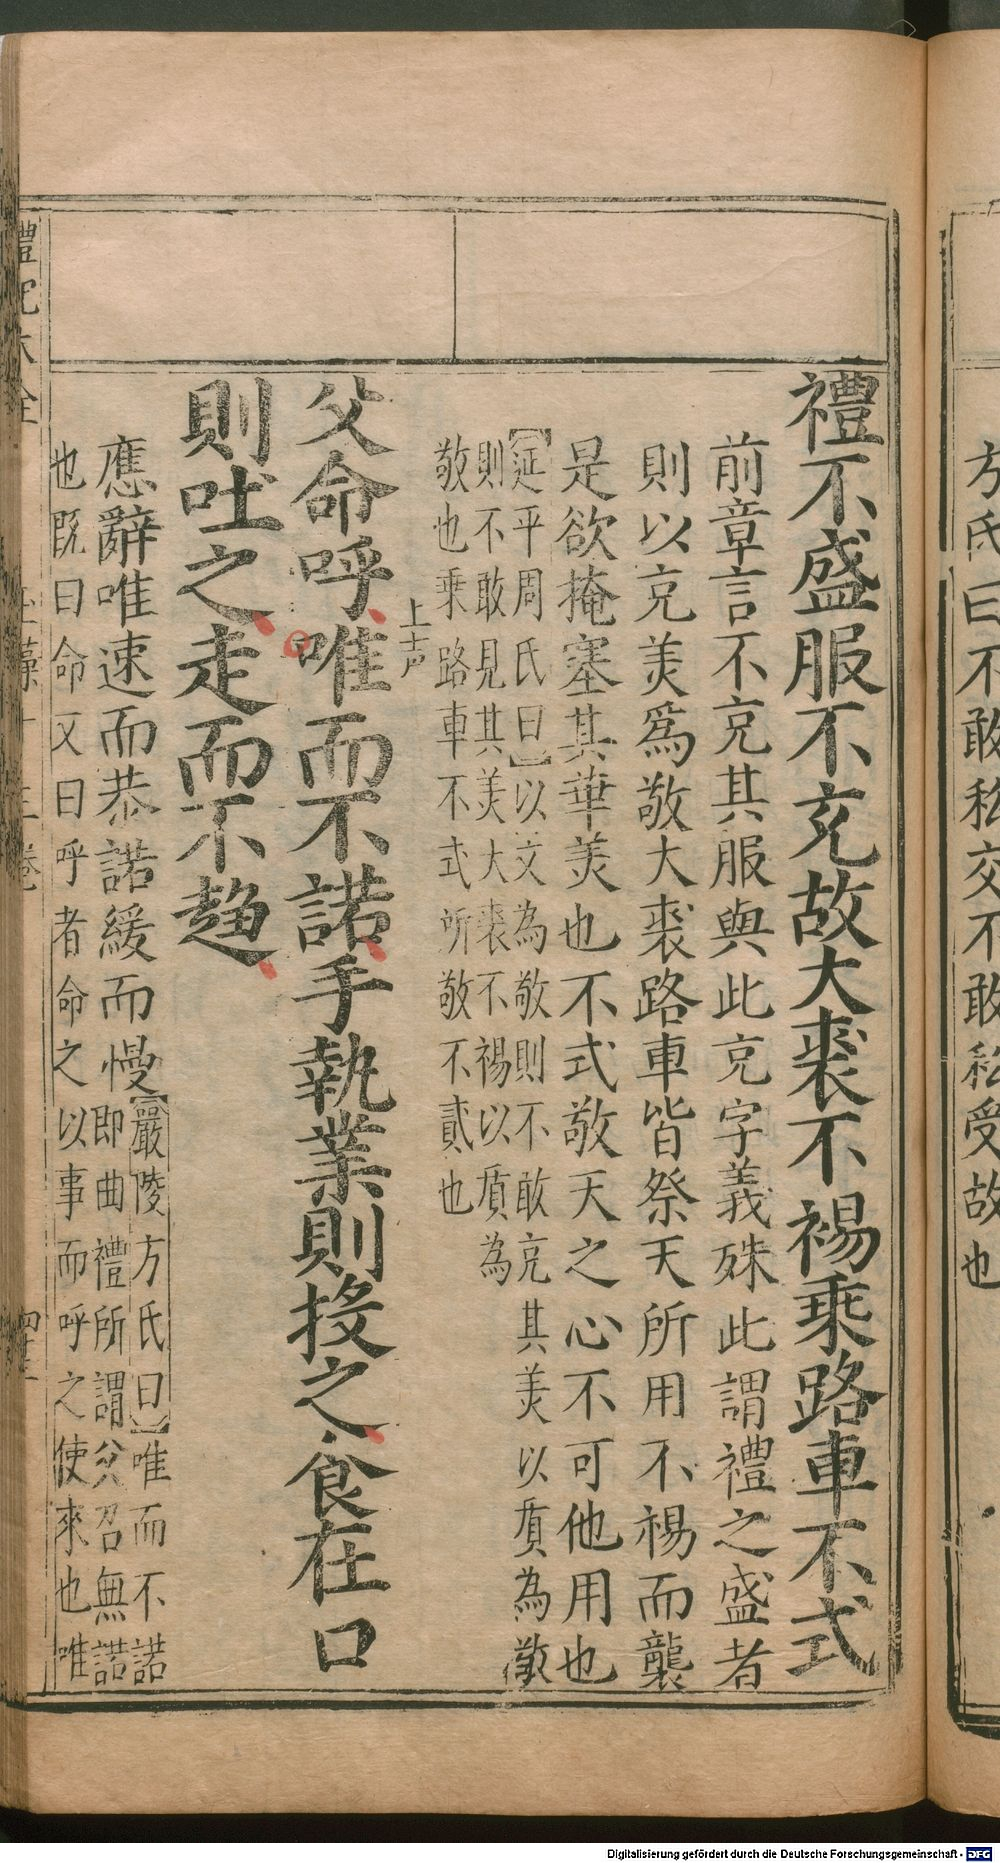 方氏曰不敢私交不敢私受故也
禮不盛服不充故大裘不裼乘路車不式
前章言不充其服與此充字義殊此謂禮之盛者
則以充美爲敬大裘路車皆祭天所用不裼而襲
是欲掩塞其華美也不式敬天之心不可他用也
【延平周氏曰】以文為敬則不敢充其美以質為敬
則不敢見其美大裘不裼以質為
敬也乘路車不式所敬不貳也
上声
父命呼唯而不諾手執業則投之食在口
則吐之走而不趨
應辭唯速而恭諾緩而慢【嚴陵方氏曰】唯而不諾
即曲禮所謂父召無諾
也既曰命又曰呼者命之以事而呼之使來也唯
禮記大全
玉藻十三卷
Digitalisierung gefördert durch die Deutsche Forschungsgemeinschaft - DFG